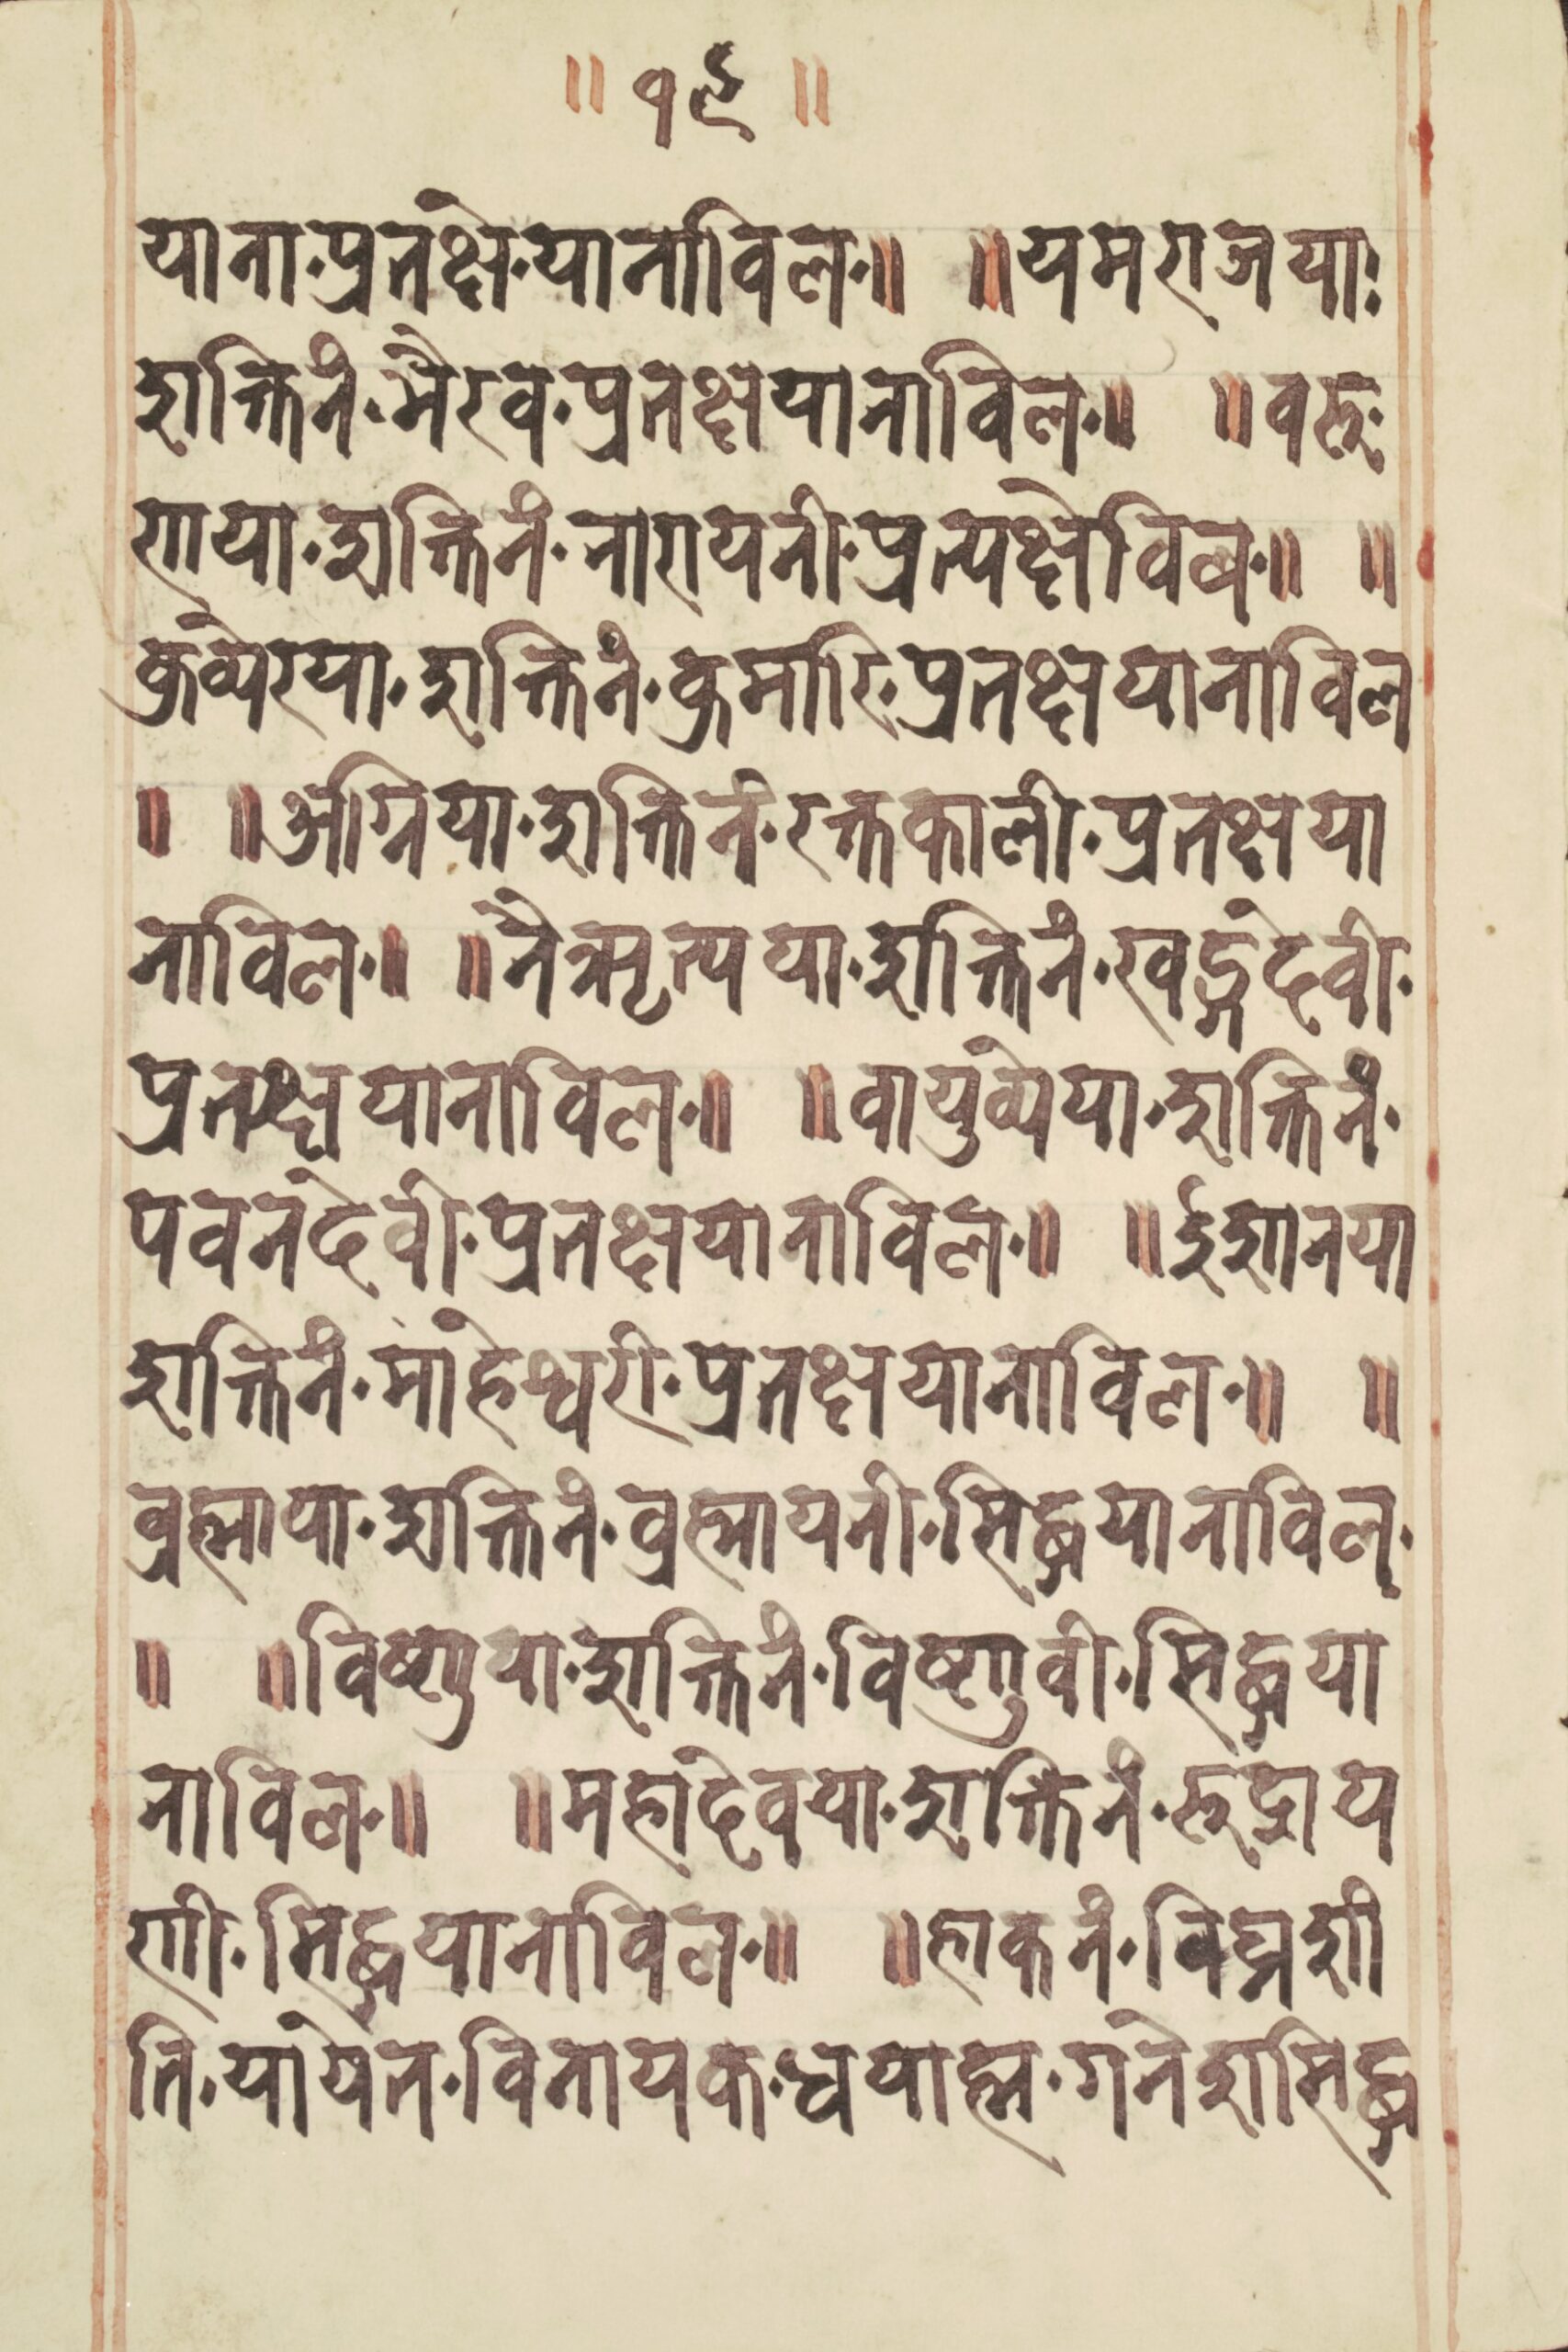 ॥ १९ ॥
याना·प्रतक्षे·यानाविल·॥ ॥यमराजयाः
शक्तिनं·भैरव·प्रतक्षयानाविल·॥ ॥वरु·
णया·शक्तिनं·नारायनी·प्रत्यक्षेविल·॥ ॥
कुव्येरया·शक्तिनं·कुमारि·प्रतक्षयानाविल
॥ ॥अग्निया·शक्तिनं·रक्तकाली·प्रतक्षया
नाविल·॥ ॥नैऋत्यया·शक्तिनं·खड्गदेवी·
प्रतक्षयानाविल·॥ ॥वायुव्येया·शक्तिनं·
पवनदेवी·प्रतक्षयानाविल·॥ ॥ईशानया
शक्तिनं·माहेश्वरी·प्रतक्षयानाविल·॥ ॥
ब्रह्माया·शक्तिनं·ब्रह्मायनी·सिद्धयानाविल·
॥ ॥विष्णुया·शक्तिनं·विष्णुवी·सिद्धया
नाविल·॥ ॥महादेवया·शक्तिनं·रुद्राय
णी·सिद्धयानाविल·॥ ॥हाकनं·विघ्नशां
ति·यायेत·विनायक·धयाह्म·गनेशसिद्ध